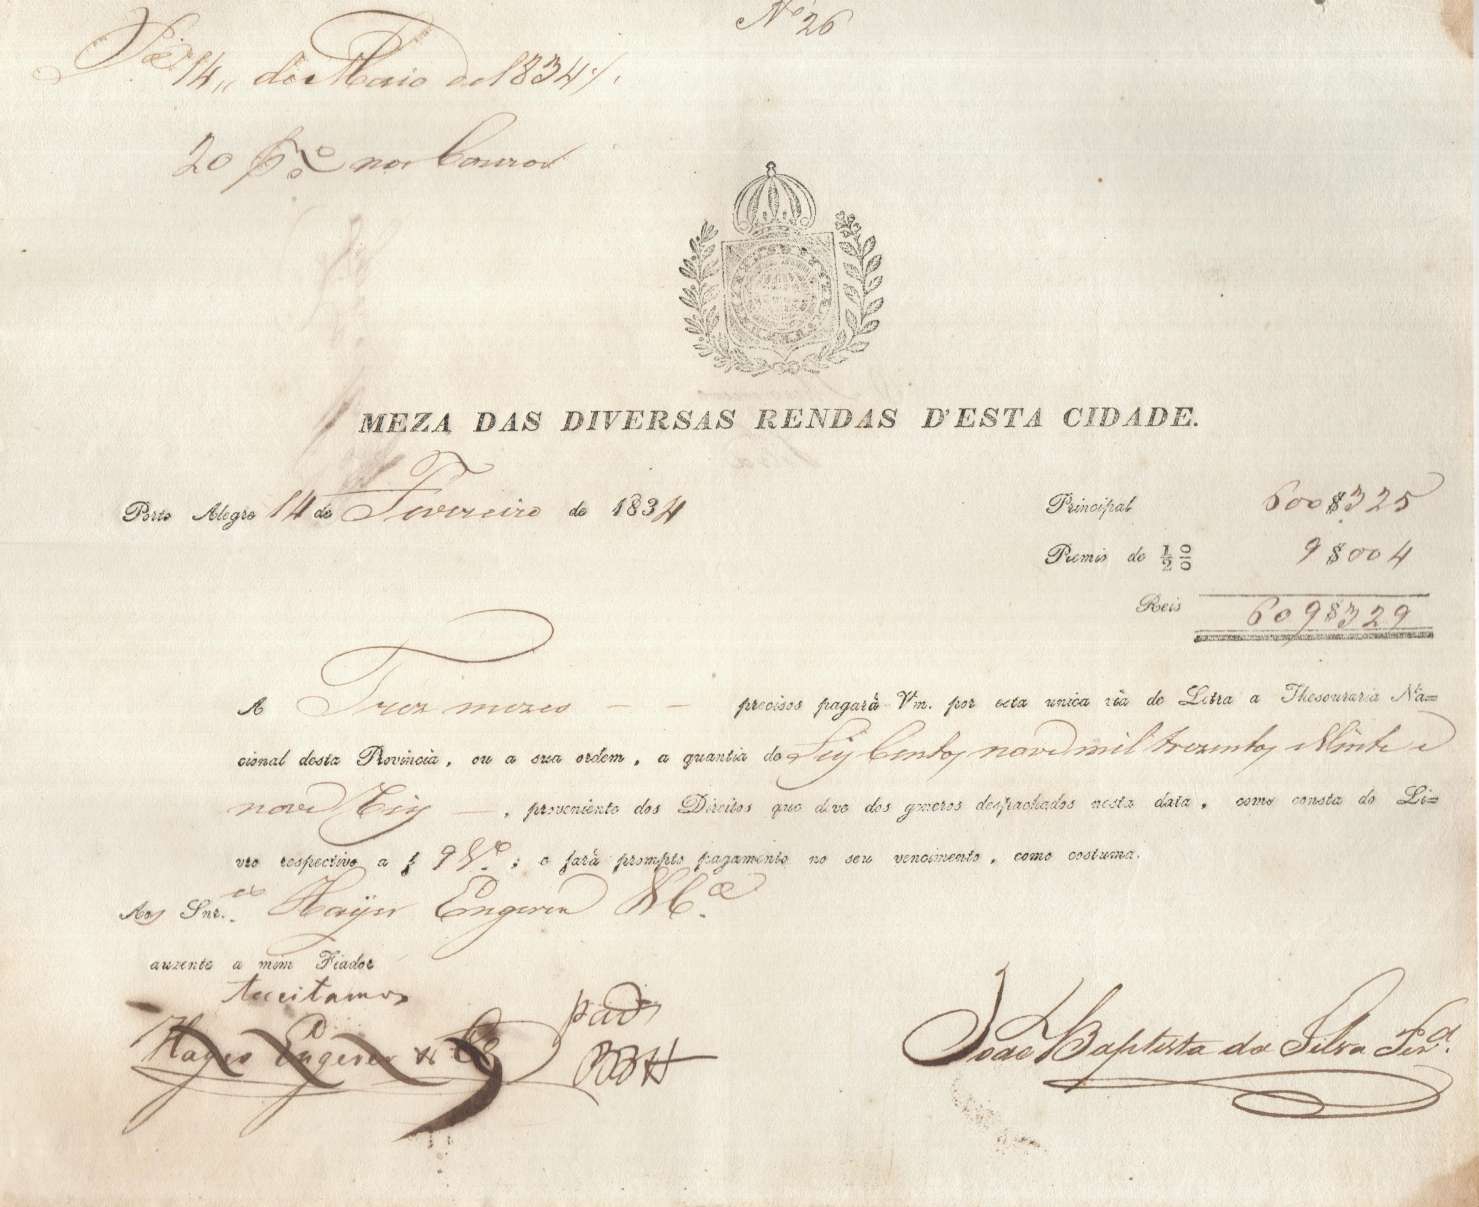 Nº 26
14 de Maio de 1834
20 p% nos Couros
MEZA DAS DIVERSAS RENDAS D'ESTA CIDADE.
Porto Alegre 14 de Fevereiro de 1834
Principal 600$325
Premio de 1/2 0/0 9$004
Reis 609$329
A Trez mezes — — precisos pagará Vm. por esta unica via de Letra a Thesouraria Na=
cional desta Provincia, ou a sua ordem, a quantia de Seis Centos nove mil trezentos e Vinte e
nove Reis —, proveniente dos Direitos que deve dos generos despachados nesta data, como consta do Li=
vro respectivo a f 9 Vº; e fará prompto pagamento no seu vencimento, como costuma.
Aos Snr.es Hayes Engerer & Cª
auzente a mim Fiador
Acceitamos
Hayes Engerer & Cº
João Baptista da Silva Perª